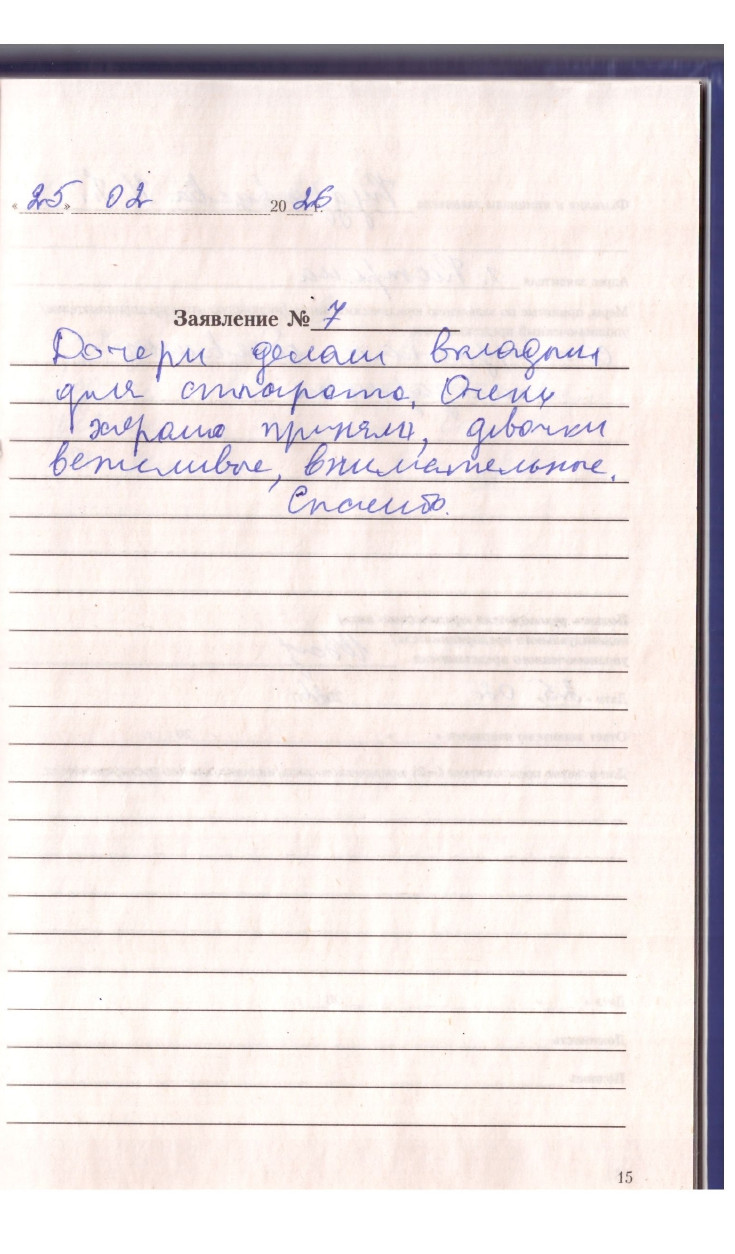 « 25 » 02 20 26 г.
Заявление № 7
Дочери делали вкладыш
для аппарата. Очень
хорошо приняли, девочки
вежливые, внимательные.
Спасибо.
15